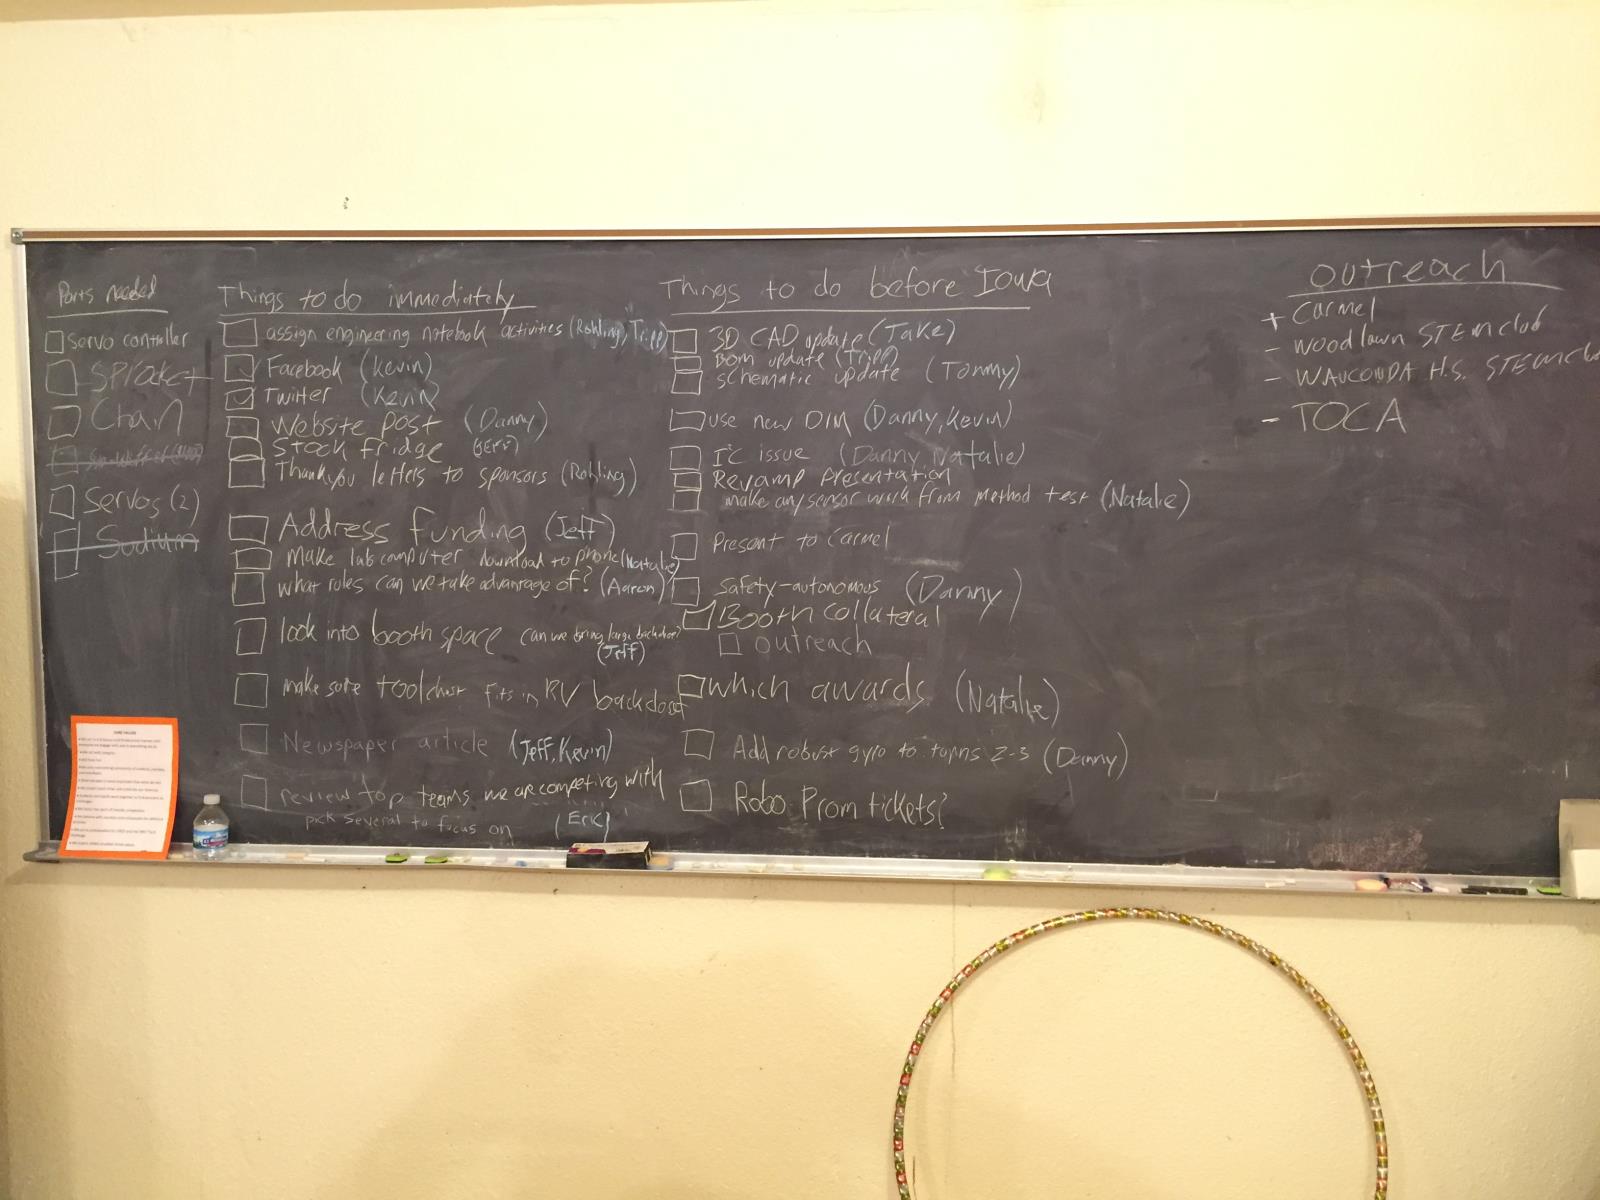 Parts needed
servo controller
Sproket
Chain
Servos (2)
Sodium
Things to do immediately
assign engineering notebook activities (Rohling, Tripp)
Facebook (Kevin)
Twitter (Kevin)
Website post (Danny)
Stock fridge (Jeff)
Thankyou letters to sponsors (Rohling)
Address funding (Jeff)
Make lab computer download to phone (Natalie)
what roles can we take advantage of? (Aaron)
look into booth space can we bring large backdrop?
(Jeff)
make sure toolchest fits in RV backcloset
Newspaper article (Jeff, Kevin)
review top teams we are competing with
pick several to focus on (Eric)
Things to do before Iowa
3D CAD update (Jake)
BOM update (Tripp)
schematic update (Tommy)
use new DIM (Danny, Kevin)
I2C issue (Danny Natalie)
Revamp Presentation
make any sensor work from method test (Natalie)
Present to Carmel
safety-autonomous (Danny)
Booth collateral
outreach
which awards (Natalie)
Add robust gyro to turns 2-3 (Danny)
Robo Prom tickets?
outreach
+ Carmel
- Woodlawn STEM club
- WAUCONDA H.S. STEM
- TOCA